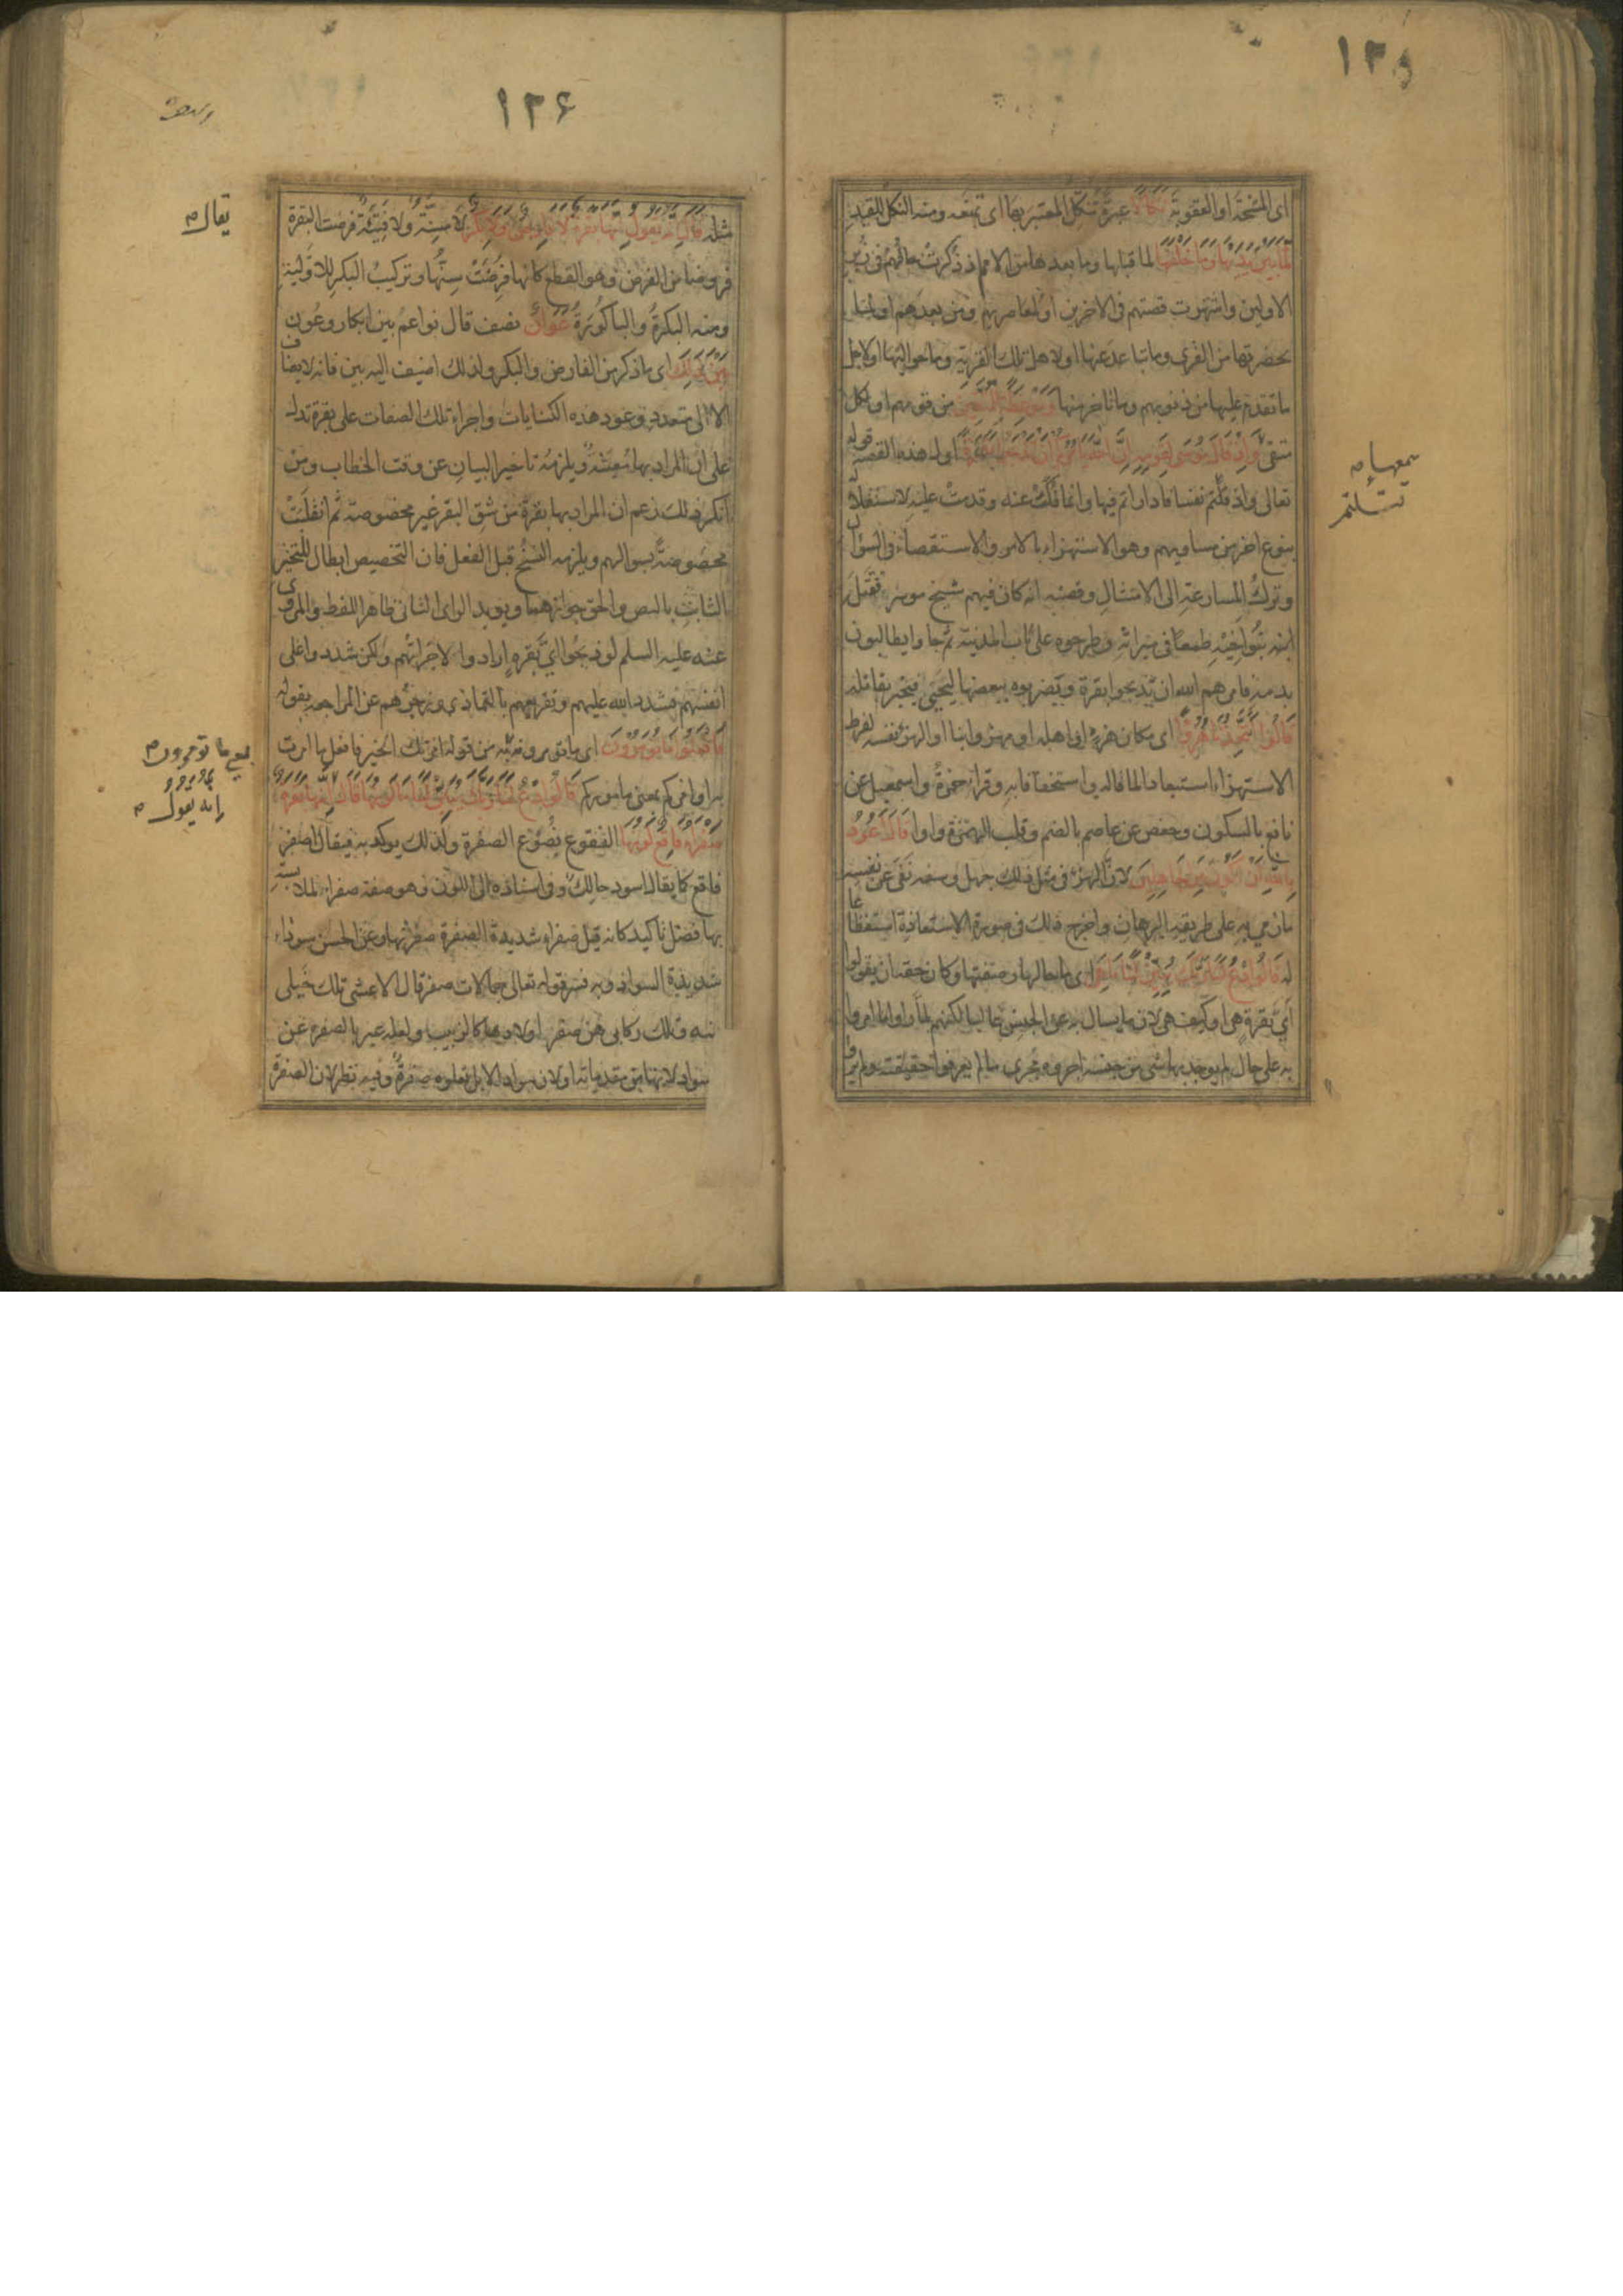 ١٣٥
اى المسخة او العقوبة نكالا عبرة تنكل المعتبر بها اى تمنعه ومنه النكل للقيد
لما بين يديها وما خلفها لما قبلها وما بعدها من الامم اذ ذكرت حالهم فى زبر
الاولين واشتهرت قصتهم فى الاخرين او لمعاصريهم ومن بعدهم او لما
بحضرتها من القرى وما تباعد عنها او لاهل تلك القرية وما حواليها او لاجل
ما تقدم عليها من ذنوبهم وما تاخر منها وموعظة للمتقين من قومهم او لكل
متقى واذ قال موسى لقومه ان الله يامركم ان تذبحوا بقرة اول هذه القصة قوله
تعالى واذ قتلتم نفسا فادارأتم فيها وانما فكت عنه وقدمت عليه لاستقلاله
بنوع اخر من مساويهم وهو الاستهزاء بالامر والاستقصاء فى السؤال
وترك المسارعة الى الامتثال وقصته انه كان فيهم شيخ موسر فقتل
ابنه بنو اخيه طمعا فى ميراثه وطرحوه على باب المدينة ثم جاوا يطالبون
بدمه فامرهم الله ان يذبحوا بقرة ويضربوه ببعضها ليحيى فيخبر بقاتله
قالوا اتتخذنا هزوا اى مكان هزء او اهله او مهزوا بنا او الهزء نفسه لفرط
الاستهزاء استبعادا لما قاله واستخفافا به وقرا حمزة واسمعيل عن
نافع بالسكون وحفص عن عاصم بالضم وقلب الهمزة واوا قال اعوذ
بالله ان اكون من الجاهلين لان الهزء فى مثل ذلك جهل وسفه نفى عن نفسه
ما رمى به على طريقة البرهان واخرج ذلك فى صورة الاستعاذة استفظاعا
له قالوا ادع لنا ربك يبين لنا ما هى اى ما حالها وصفتها وكان حقه ان يقولوا
اى بقرة هى او كيف هى لان ما يسال به عن الجنس غالبا لكنهم لما راوا ما امروا
به على حال لم يوجد بها شئ من جنسه اجروه مجرى ما لم يعرفوا حقيقته ولم يروا
١٣٦
يقال
مثله قال انه يقول انها بقرة لا فارض ولا بكر لا مسنة ولا فتية فرضت البقرة
فروضا من الفرض وهو القطع كانها فرضت سنها وتركيب البكر للاولية
ومنه البكرة والباكورة عوان نصف قال نواعم بين ابكار وعون
بين ذلك اى ما ذكر من الفارض والبكر ولذلك اضيف اليه بين فانه لا يضاف
الا الى متعدد وعود هذه الكنايات واجراء تلك الصفات على بقرة تدل
على ان المراد بها معينة ويلزمه تاخير البيان عن وقت الخطاب ومن
انكر ذلك زعم ان المراد بها بقرة من شق البقر غير مخصوصة ثم انقلبت
مخصوصة بسوالهم ويلزمه النسخ قبل الفعل فان التخصيص ابطال للتخيير
الثابت بالنص والحق جوازهما ويويد الراى الثانى ظاهر اللفظ والمروى
عنه عليه السلم لو ذبحوا اى بقرة ارادوا لاجزاتهم ولكن شددوا على
انفسهم فشدد الله عليهم وتقريعهم بالتمادى وزجرهم عن المراجعة بقوله
فافعلوا ما تومرون اى ما تومرونه من قوله امرتك الخير فافعل ما امرت
به او امركم بمعنى ماموركم قالوا ادع لنا ربك يبين لنا ما لونها قال انه يقول انها بقرة
صفراء فاقع لونها الفقوع نصوع الصفرة ولذلك يوكد به فيقال اصفر
فاقع كما يقال اسود حالك وفى اسناده الى اللون وهو صفة صفراء لملابسته
بها فضل تاكيد كانه قيل صفراء شديدة الصفرة صفرتها وعن الحسن سوداء
شديدة السواد وبه فسر قوله تعالى جمالات صفر قال الاعشى تلك خيلى
منه وتلك ركابى هن صفر اولادها كالزبيب ولعله عبر بالصفرة عن
سواد لانها من مقدماته او لان سواد الابل تعلوه صفرة وفيه نظر لان الصفرة
بمعنى ما تومرون
انه يقول